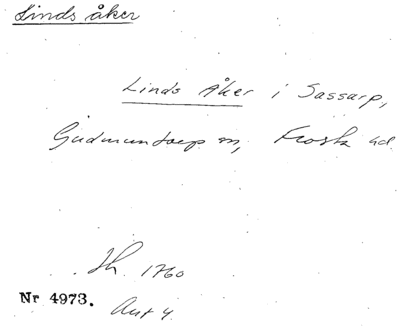 Linds åker
Linds Åker i Sassarp,
Gudmuntorp sn, Frosta hd.
Jh. 1760
Nr 4973. Avt 4.